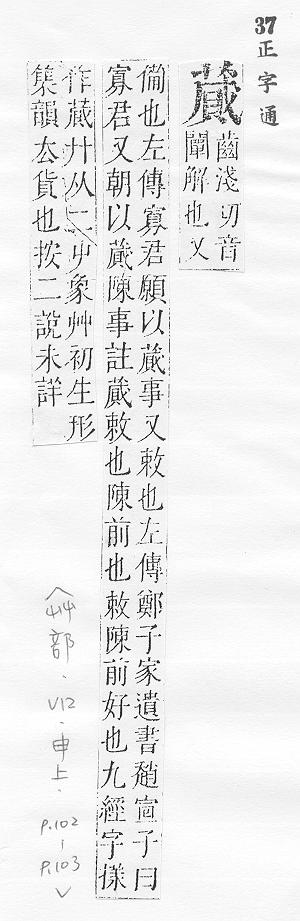 37正字通
蕆
齒淺切音
闡解也又
備也左傳寡君願以蕆事又敕也左傳鄭子家遺書趙宣子曰
寡君又朝以蕆陳事註蕆敕也陳前也敕陳前好也九經字㨾
作蕆廾从二屮象艸初生形
集韻厺貨也按二說未詳
(艸部．V12．申上．P.102-P.103)